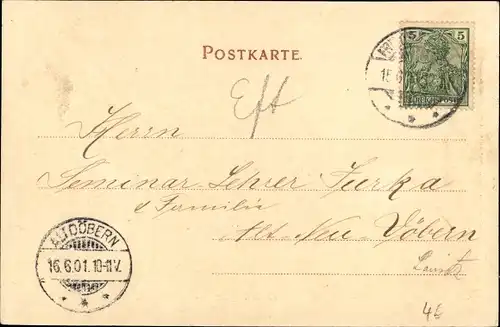 POSTKARTE.
5 5
15.6.
Eft
Herrn
Seminar Lehrer Jurka
& Familie
Alt Neu-Döbern
Lausitz
ALTDÖBERN
16.6.01.10-11V.
* * *